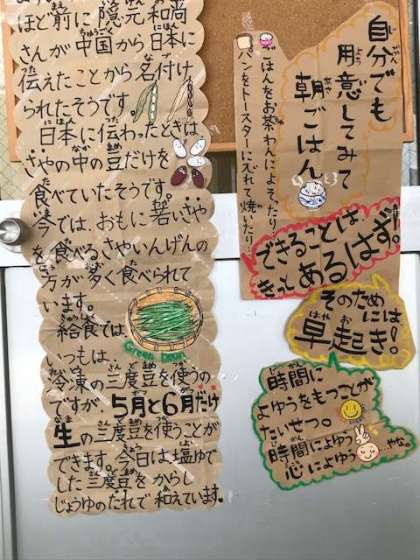 ほど前に隠元和尚
さんが中国から日本に
伝えたことから名付け
られたそうです。
日本に伝わったときは、
さやの中の豆だけを
食べていたそうです。
今では、おもに若いさや
を食べるさやいんげんの
方が多く食べられて
います。
給食では、
Green bean
いつもは、
冷凍の三度豆を使うの
ですが、5月と6月だけ
生の三度豆を使うことが
できます。今日は塩ゆで
した三度豆をからし
じょうゆのたれで和えています。
自分でも
用意してみて
朝ごはん
ごはんをお茶わんによそったり
パンをトースターに入れて焼いたり
できることは、
きっとあるはず。
そのため
には
早起き!
時間に
よゆうをもつことが
たいせつ。
時間によゆう
心によゆう
…やな。